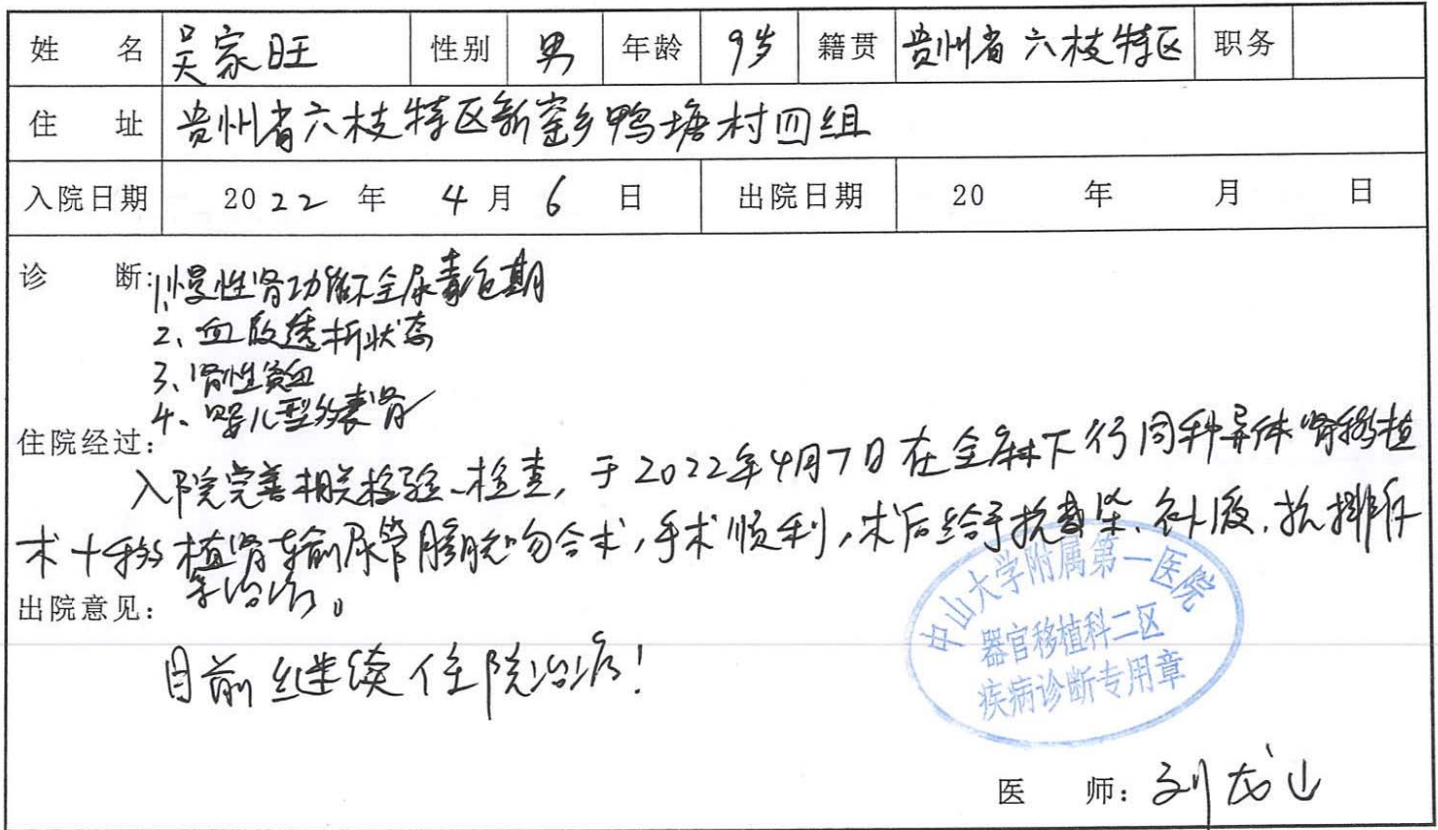 姓 名 吴家旺 性别 男 年龄 9岁 籍贯 贵州省六枝特区 职务
住 址 贵州省六枝特区新窑乡鸭塘村四组
入院日期 2022 年 4 月 6 日 出院日期 20 年 月 日
诊 断:1、慢性肾功能不全尿毒症期
2、血液透析状态
3、肾性贫血
4、婴儿型多囊肾
住院经过:
入院完善相关检验、检查,于2022年4月7日在全麻下行同种异体肾移植
术+移植肾输尿管膀胱吻合术,手术顺利,术后给予抗感染、补液、抗排斥
等治疗。
出院意见:
目前继续住院治疗!
中山大学附属第一医院
器官移植科二区
疾病诊断专用章
医 师:刘龙山